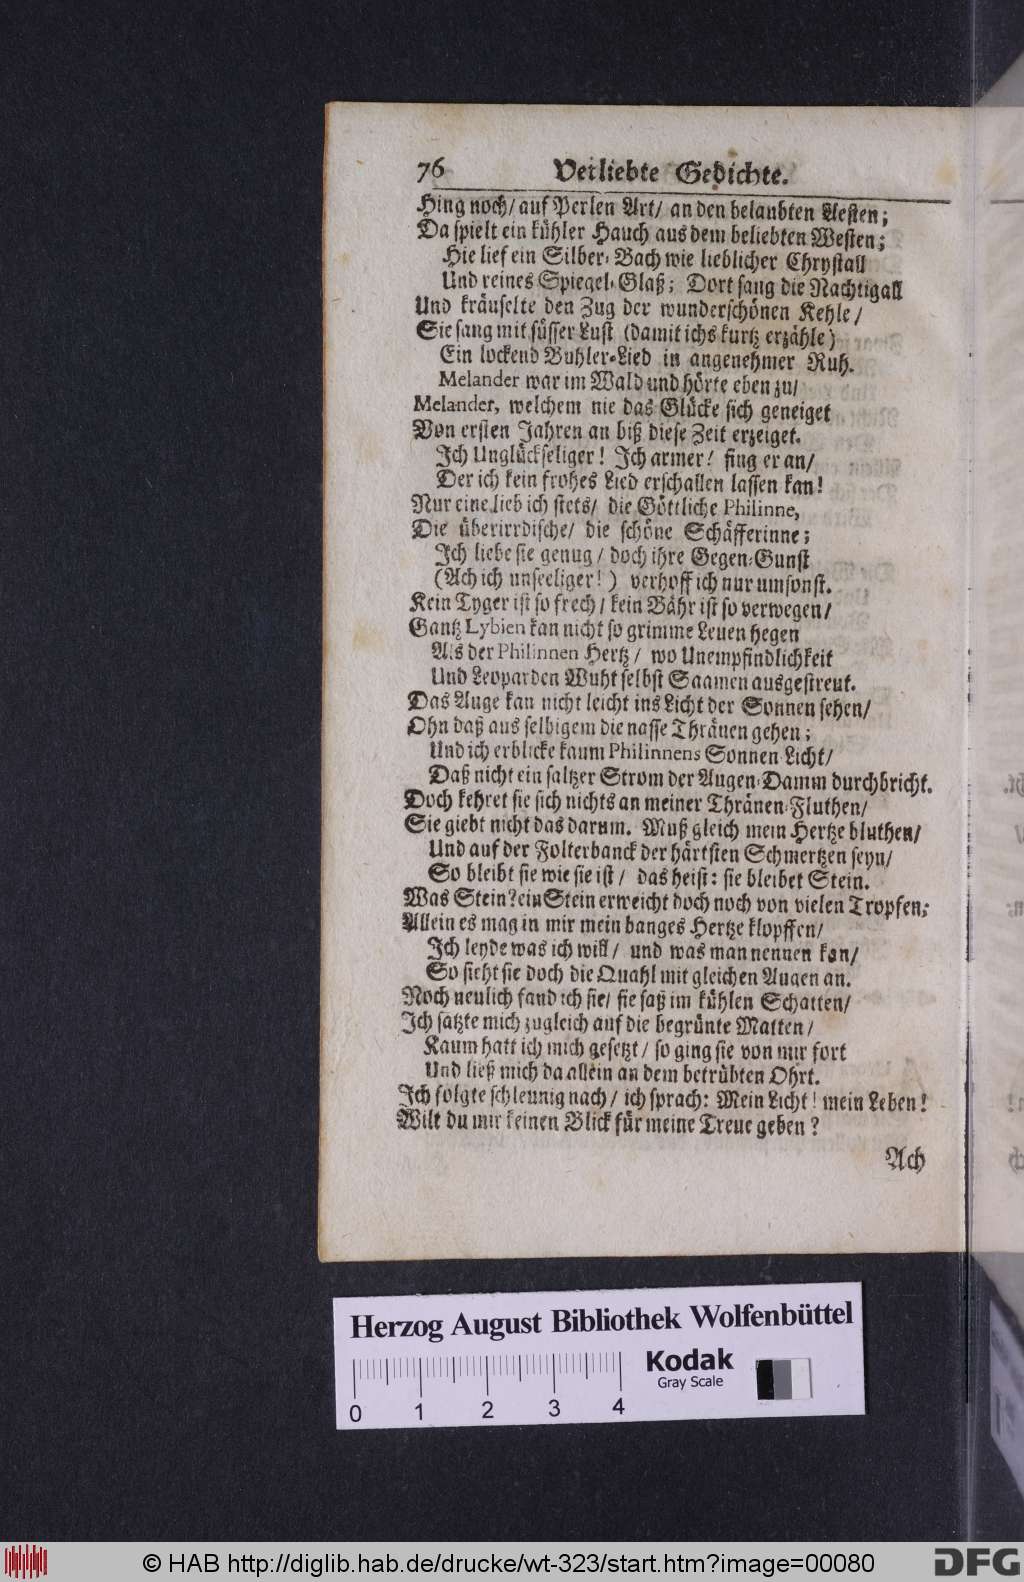 76 Verliebte Gedichte.
Hing noch/ auf Perlen Art/ an den belaubten Aesten;
Da spielt ein kühler Hauch aus dem beliebten Westen;
Hie lief ein Silber-Bach wie lieblicher Chrystall
Und reines Spiegel-Glaß; Dort sang die Nachtigall
Und kräuselte den Zug der wunderschönen Kehle/
Sie sang mit süsser Lust (damit ichs kurtz erzähle)
Ein lockend Buhler-Lied in angenehmer Ruh.
Melander war im Wald und hörte eben zu/
Melander, welchem nie das Glücke sich geneiget
Von ersten Jahren an biß diese Zeit erzeiget.
Ich Unglückseliger! Ich armer! fing er an/
Der ich kein frohes Lied erschallen lassen kan!
Nur eine lieb ich stets/ die Göttliche Philinne,
Die überirrdische/ die schöne Schäfferinne;
Ich liebe sie genug/ doch ihre Gegen-Gunst
(Ach ich unseeliger!) verhoff ich nur umsonst.
Kein Tyger ist so frech/ kein Bähr ist so verwegen/
Gantz Lybien kan nicht so grimme Leuen hegen
Als der Philinnen Hertz/ wo Unempfindlichkeit
Und Leoparden Wuht selbst Saamen ausgestreut.
Das Auge kan nicht leicht ins Licht der Sonnen sehen/
Ohn daß aus selbigem die nasse Thränen gehen;
Und ich erblicke kaum Philinnens Sonnen Licht/
Daß nicht ein saltzer Strom der Augen-Damm durchbricht.
Doch kehret sie sich nichts an meiner Thränen-Fluthen/
Sie giebt nicht das darum. Muß gleich mein Hertze bluthen/
Und auf der Folterbanck der härtsten Schmertzen seyn/
So bleibt sie wie sie ist/ das heist: sie bleibet Stein.
Was Stein? ein Stein erweicht doch noch von vielen Tropfen;
Allein es mag in mir mein banges Hertze klopffen/
Ich leyde was ich will/ und was man nennen kan/
So sieht sie doch die Quahl mit gleichen Augen an.
Noch neulich fand ich sie/ sie saß im kühlen Schatten/
Ich satzte mich zugleich auf die begrünte Matten/
Kaum hatt ich mich gesetzt/ so ging sie von mir fort
Und ließ mich da allein an dem betrübten Ohrt.
Ich folgte schleunig nach/ ich sprach: Mein Licht! mein Leben!
Wilt du mir keinen Blick für meine Treue geben?
Ach
Herzog August Bibliothek Wolfenbüttel
Kodak
Gray Scale
0 1 2 3 4
© HAB http://diglib.hab.de/drucke/wt-323/start.htm?image=00080
DFG